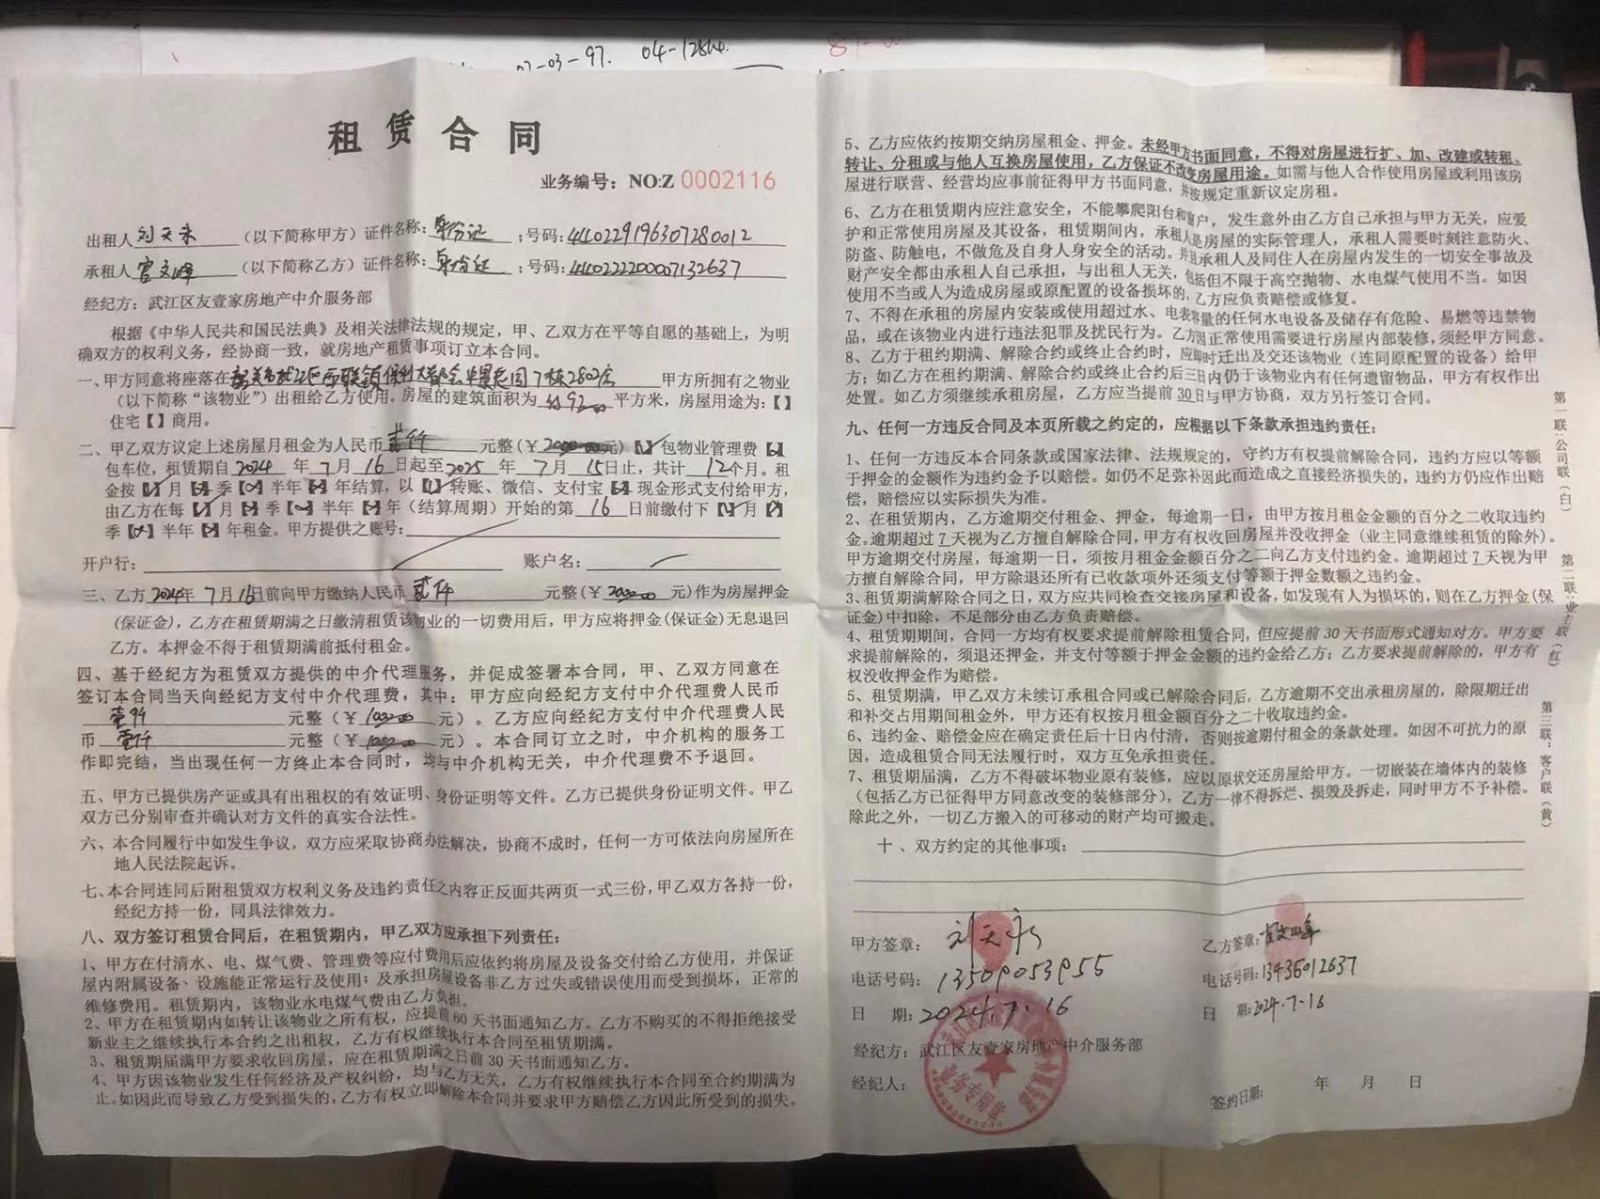 04-128
租赁合同
业务编号：NO:Z 0002116
出租人 刘天永 （以下简称甲方）证件名称：身份证；号码：440229196307280012
承租人 官文峰 （以下简称乙方）证件名称：身份证；号码：440222200007132637
经纪方：武江区友壹家房地产中介服务部
根据《中华人民共和国民法典》及相关法律法规的规定，甲、乙双方在平等自愿的基础上，为明
确双方的权利义务，经协商一致，就房地产租赁事项订立本合同。
一、甲方同意将座落在韶关市武江区 保利大都会 花园7栋2802房 甲方所拥有之物业
（以下简称“该物业”）出租给乙方使用。房屋的建筑面积为 92 平方米，房屋用途为：【】
住宅【】商用。
二、甲乙双方议定上述房屋月租金为人民币 贰仟 元整（￥2000.00元）【】包物业管理费【】
包车位，租赁期自2024年7月16日起至2025年7月15日止，共计12个月。租
金按【】月【】季【】半年【】年结算，以【】转账、微信、支付宝【】现金形式支付给甲方，
由乙方在每【】月【】季【】半年【】年（结算周期）开始的第16日前缴付下【】月【】
季【】半年【】年租金。甲方提供之账号：
开户行： 账户名：
三、乙方2024年7月16日前向甲方缴纳人民币 贰仟 元整（￥2000.00元）作为房屋押金
(保证金)，乙方在租赁期满之日缴清租赁该物业的一切费用后，甲方应将押金(保证金)无息退回
乙方。本押金不得于租赁期满前抵付租金。
四、基于经纪方为租赁双方提供的中介代理服务，并促成签署本合同，甲、乙双方同意在
签订本合同当天向经纪方支付中介代理费，其中：甲方应向经纪方支付中介代理费人民币
壹仟 元整（￥1000.00元）。乙方应向经纪方支付中介代理费人民
币 壹仟 元整（￥1000.00元）。本合同订立之时，中介机构的服务工
作即完结，当出现任何一方终止本合同时，均与中介机构无关，中介代理费不予退回。
五、甲方已提供房产证或具有出租权的有效证明、身份证明等文件。乙方已提供身份证明文件。甲乙
双方已分别审查并确认对方文件的真实合法性。
六、本合同履行中如发生争议，双方应采取协商办法解决，协商不成时，任何一方可依法向房屋所在
地人民法院起诉。
七、本合同连同后附租赁双方权利义务及违约责任之内容正反面共两页一式三份，甲乙双方各持一份，
经纪方持一份，同具法律效力。
八、双方签订租赁合同后，在租赁期内，甲乙双方应承担下列责任：
1、甲方在付清水、电、煤气费、管理费等应付费用后应依约将房屋及设备交付给乙方使用，并保证
屋内附属设备、设施能正常运行及使用；及承担房屋设备非乙方过失或错误使用而受到损坏，正常的
维修费用。租赁期内，该物业水电煤气费由乙方负担。
2、甲方在租赁期内如转让该物业之所有权，应提前60天书面通知乙方。乙方不购买的不得拒绝接受
新业主之继续执行本合约之出租权，乙方有权继续执行本合同至租赁期满。
3、租赁期届满甲方要求收回房屋，应在租赁期满之日前30天书面通知乙方。
4、甲方因该物业发生任何经济及产权纠纷，均与乙方无关，乙方有权继续执行本合同至合约期满为
止。如因此而导致乙方受到损失的，乙方有权立即解除本合同并要求甲方赔偿乙方因此所受到的损失。
5、乙方应依约按期交纳房屋租金、押金。未经甲方书面同意，不得对房屋进行扩、加、改建或转租、
转让、分租或与他人互换房屋使用，乙方保证不改变房屋用途。如需与他人合作使用房屋或利用该房
屋进行联营、经营均应事前征得甲方书面同意，并按规定重新议定房租。
6、乙方在租赁期内应注意安全，不能攀爬阳台和窗户，发生意外由乙方自己承担与甲方无关，应爱
护和正常使用房屋及其设备，租赁期间内，承租人是房屋的实际管理人，承租人需要时刻注意防火、
防盗、防触电，不做危及自身人身安全的活动。并且承租人及同住人在房屋内发生的一切安全事故及
财产安全都由承租人自己承担，与出租人无关，包括但不限于高空抛物、水电煤气使用不当。如因
使用不当或人为造成房屋或原配置的设备损坏的，乙方应负责赔偿或修复。
7、不得在承租的房屋内安装或使用超过水、电表容量的任何水电设备及储存有危险、易燃等违禁物
品，或在该物业内进行违法犯罪及扰民行为。乙方因正常使用需要进行房屋内部装修，须经甲方同意。
8、乙方于租约期满、解除合约或终止合约时，应即时迁出及交还该物业（连同原配置的设备）给甲
方；如乙方在租约期满、解除合约或终止合约后三日内仍于该物业内有任何遗留物品，甲方有权作出
处置。如乙方须继续承租房屋，乙方应当提前30日与甲方协商，双方另行签订合同。
九、任何一方违反合同及本页所载之约定的，应根据以下条款承担违约责任：
1、任何一方违反本合同条款或国家法律、法规规定的，守约方有权提前解除合同，违约方应以等额
于押金的金额作为违约金予以赔偿。如仍不足弥补因此而造成之直接经济损失的，违约方仍应作出赔
偿，赔偿应以实际损失为准。
2、在租赁期内，乙方逾期交付租金、押金，每逾期一日，由甲方按月租金金额的百分之二收取违约
金。逾期超过7天视为乙方擅自解除合同，甲方有权收回房屋并没收押金（业主同意继续租赁的除外）。
甲方逾期交付房屋，每逾期一日，须按月租金金额百分之二向乙方支付违约金。逾期超过7天视为甲
方擅自解除合同，甲方除退还所有已收款项外还须支付等额于押金数额之违约金。
3、租赁期满解除合同之日，双方应共同检查交接房屋和设备，如发现有人为损坏的，则在乙方押金(保
证金)中扣除，不足部分由乙方负责赔偿。
4、租赁期期间，合同一方均有权要求提前解除租赁合同，但应提前30天书面形式通知对方。甲方要
求提前解除的，须退还押金，并支付等额于押金金额的违约金给乙方；乙方要求提前解除的，甲方有
权没收押金作为赔偿。
5、租赁期满，甲乙双方未续订承租合同或已解除合同后，乙方逾期不交出承租房屋的，除限期迁出
和补交占用期间租金外，甲方还有权按月租金额百分之二十收取违约金。
6、违约金、赔偿金应在确定责任后十日内付清，否则按逾期付租金的条款处理。如因不可抗力的原
因，造成租赁合同无法履行时，双方互免承担责任。
7、租赁期届满，乙方不得破坏物业原有装修，应以原状交还房屋给甲方。一切嵌装在墙体内的装修
（包括乙方已征得甲方同意改变的装修部分），乙方一律不得拆烂、损毁及拆走，同时甲方不予补偿。
除此之外，一切乙方搬入的可移动的财产均可搬走。
十、双方约定的其他事项：
甲方签章：刘天永
乙方签章：官文峰
电话号码：13509053955
电话号码：13435012637
日 期：2024.7.16
日 期：2024.7.16
经纪方：武江区友壹家房地产中介服务部
经纪人：
签约日期： 年 月 日
业务专用章
第一联：公司联（白）
第二联：业主联（红）
第三联：客户联（黄）